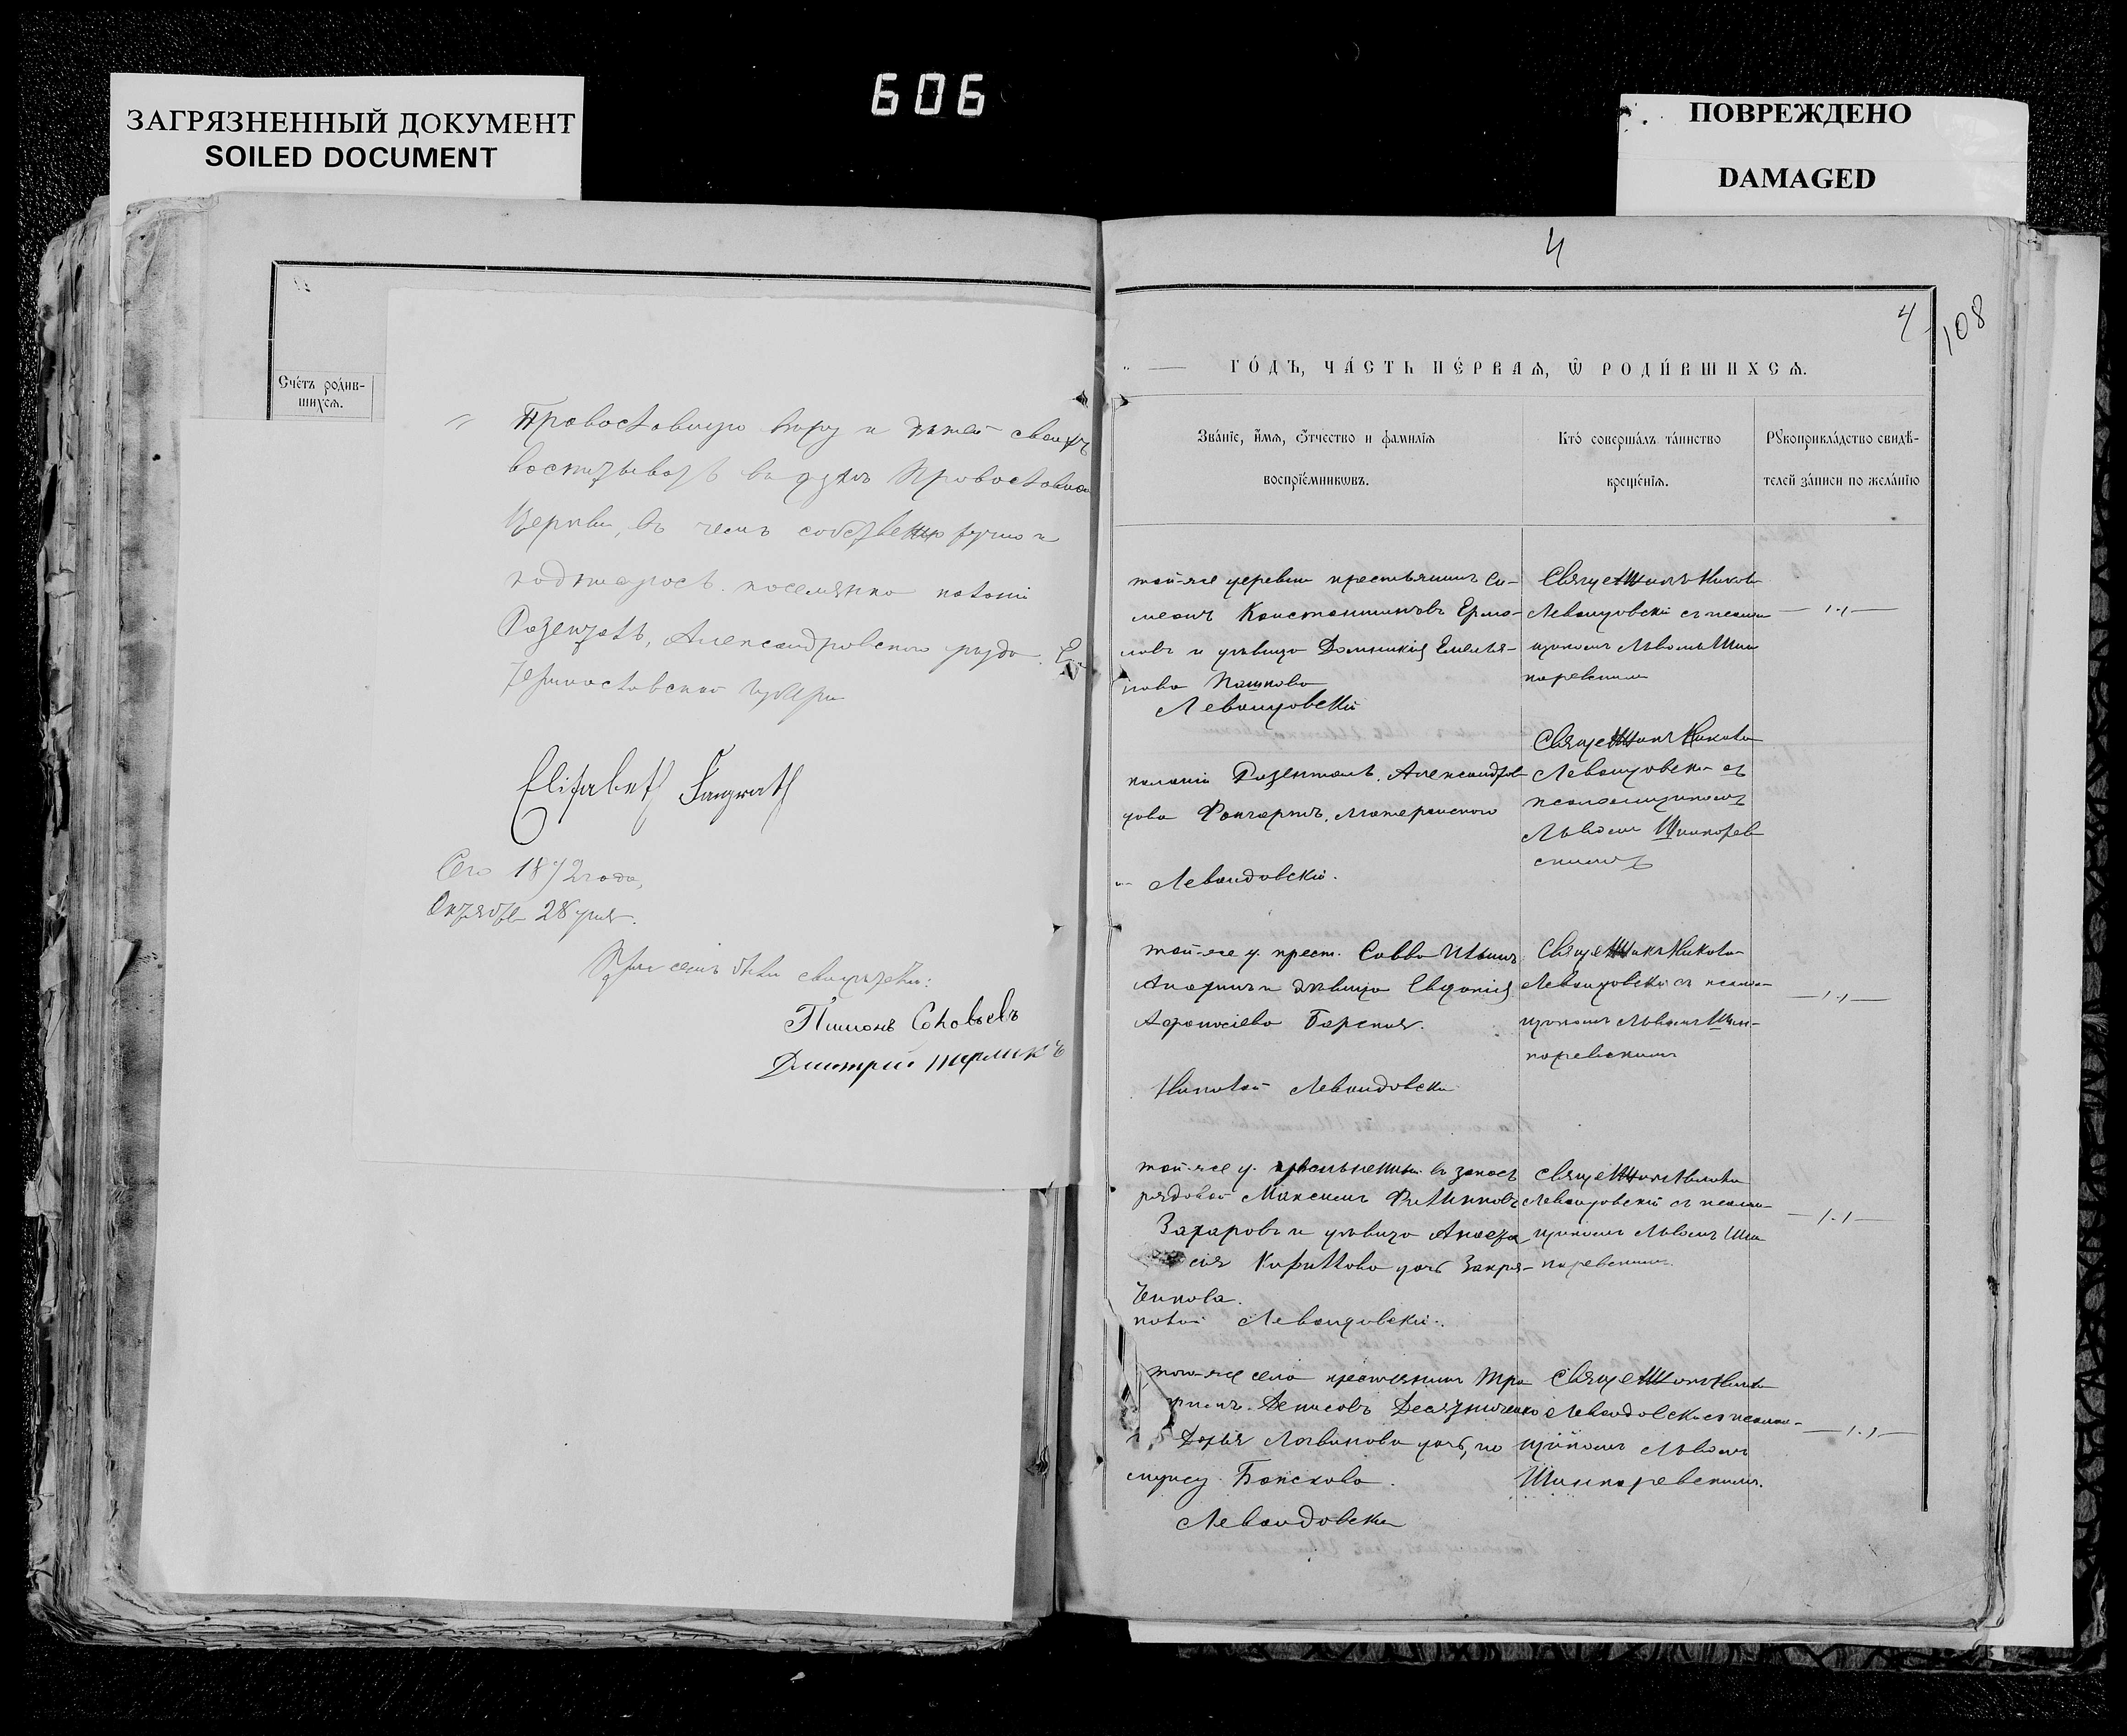 606
ЗАГРЯЗНЕННЫЙ ДОКУМЕНТ
SOILED DOCUMENT
ПОВРЕЖДЕНО
DAMAGED
Сче́тъ роди́в-
шихсѧ.
Православную вѣру и дѣтей своихъ
воспитывать въ духѣ Православной
Церкви, въ чемъ собственноручно и
подписуюсь поселянка колонiи
Розенталь, Александровского уѣзда, Ека-
теринославской губерн
Elisabeth
Сего 1872 года,
Октября 28 дня.
При семъ были свидѣтели:
Соловьевъ
Дмитрiй
4
4
108
го́дъ, ча́сть пе́рваѧ, ѿ роди́вшихсѧ.
Зва́нїе, и҆́мѧ, ѻ҆́тчество и фами́лїѧ
воспрїе́мникѡвъ.
Кто́ соверша́лъ та́инство
креще́нїѧ.
Рꙋкоприкла́дство свидѣ́-
телей за́писи по жела́нїю
той-же деревни крестьянинъ Си-
меонъ Константиновъ Ермо-
ловъ и дѣвица Домникiя Емелья-
нова Пашкова
Левандовскiй
Священникъ Николай
Левандовскiй съ псалом
щикомъ Львомъ Шин
каревскимъ
колонiи Розенталь, Александров
Левандовскiй.
Священникъ Николай
Левандовскiй съ
псаломщикомъ
Львомъ Шинкарев
скимъ
той-же д. крест. Савва Ильинъ
и дѣвица Евдокiя
Афанасiева Барская.
Николай Левандовскiй
Священникъ Николай
Левандовскiй съ псалом-
щикомъ Львомъ Шин-
каревскимъ
той-же д. въ запасъ
рядовой Максимъ Филипповъ
Захаровъ и дѣвица Анаста
сiя Кириллова дочь Закря-
чикова.
колай Левандовскiй.
Священникъ Николай
Левандовскiй съ псалом-
щикомъ Львомъ Шин
каревскимъ.
того-же села крестьянинъ
Денисовъ
Дарья Логвинова дочь, по
мужу
Левандовскiй
Священникъ Николай
Левандовскiй съ псалом-
щикомъ Львомъ
Шинкаревскимъ.